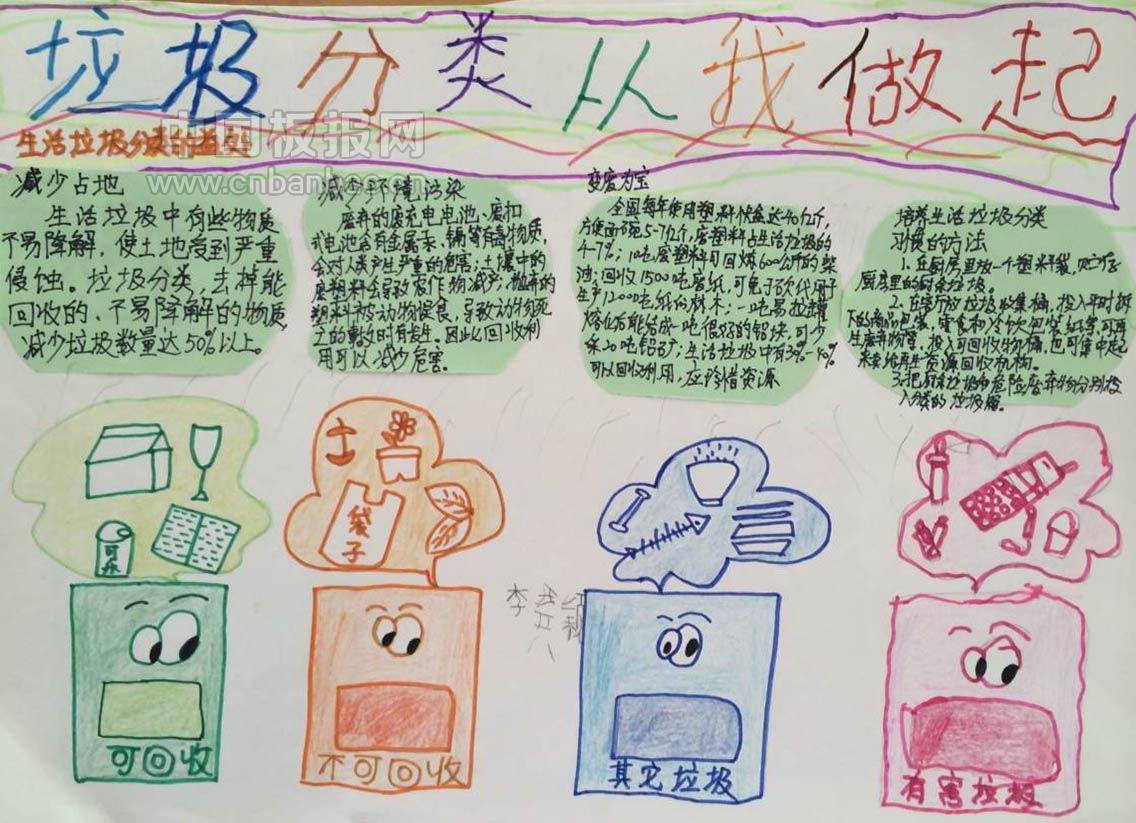 垃圾分类从我做起
中国板报网
www.cnbanbao.cn
生活垃圾分类的益处
减少占地
生活垃圾中有些物质
不易降解，使土地受到严重
侵蚀。垃圾分类，去掉能
回收的、不易降解的物质
减少垃圾数量达50%以上。
减少环境污染
废弃的废充电电池、废扣
式电池含有金属汞、镉等有毒物质，
会对人类产生严重的危害；土壤中的
废塑料会导致农作物减产；抛弃的
塑料被动物误食，导致动物死
亡的事故时有发生。因此回收利
用可以减少危害。
变废为宝
全国每年使用塑料快餐盒达40亿个，
方便面碗5-7亿个，废塑料占生活垃圾的
4-7%；10吨废塑料可回炼600公斤的柴
油；回收1500吨废纸，可免于砍伐用于
生产1200吨纸的林木；一吨易拉罐
熔化后能结成一吨很好的铝块，可少
采20吨铝矿；生活垃圾中有30%-40%
可以回收利用，应珍惜资源
培养生活垃圾分类
习惯的方法
1.在厨房里放一个塑料袋，贮存
厨房里的厨余垃圾。
2.在客厅放垃圾收集桶，投入平时拆
下的商品包装，零食和冷饮包装纸等，可再
生废弃物等，投入可回收物桶，也可集中起
来卖给再生资源回收机构。
3.把有害垃圾和危险废弃物分别投
入分类的垃圾桶。
土
袋子
可乐
李
八
可回收
不可回收
其它垃圾
有害垃圾